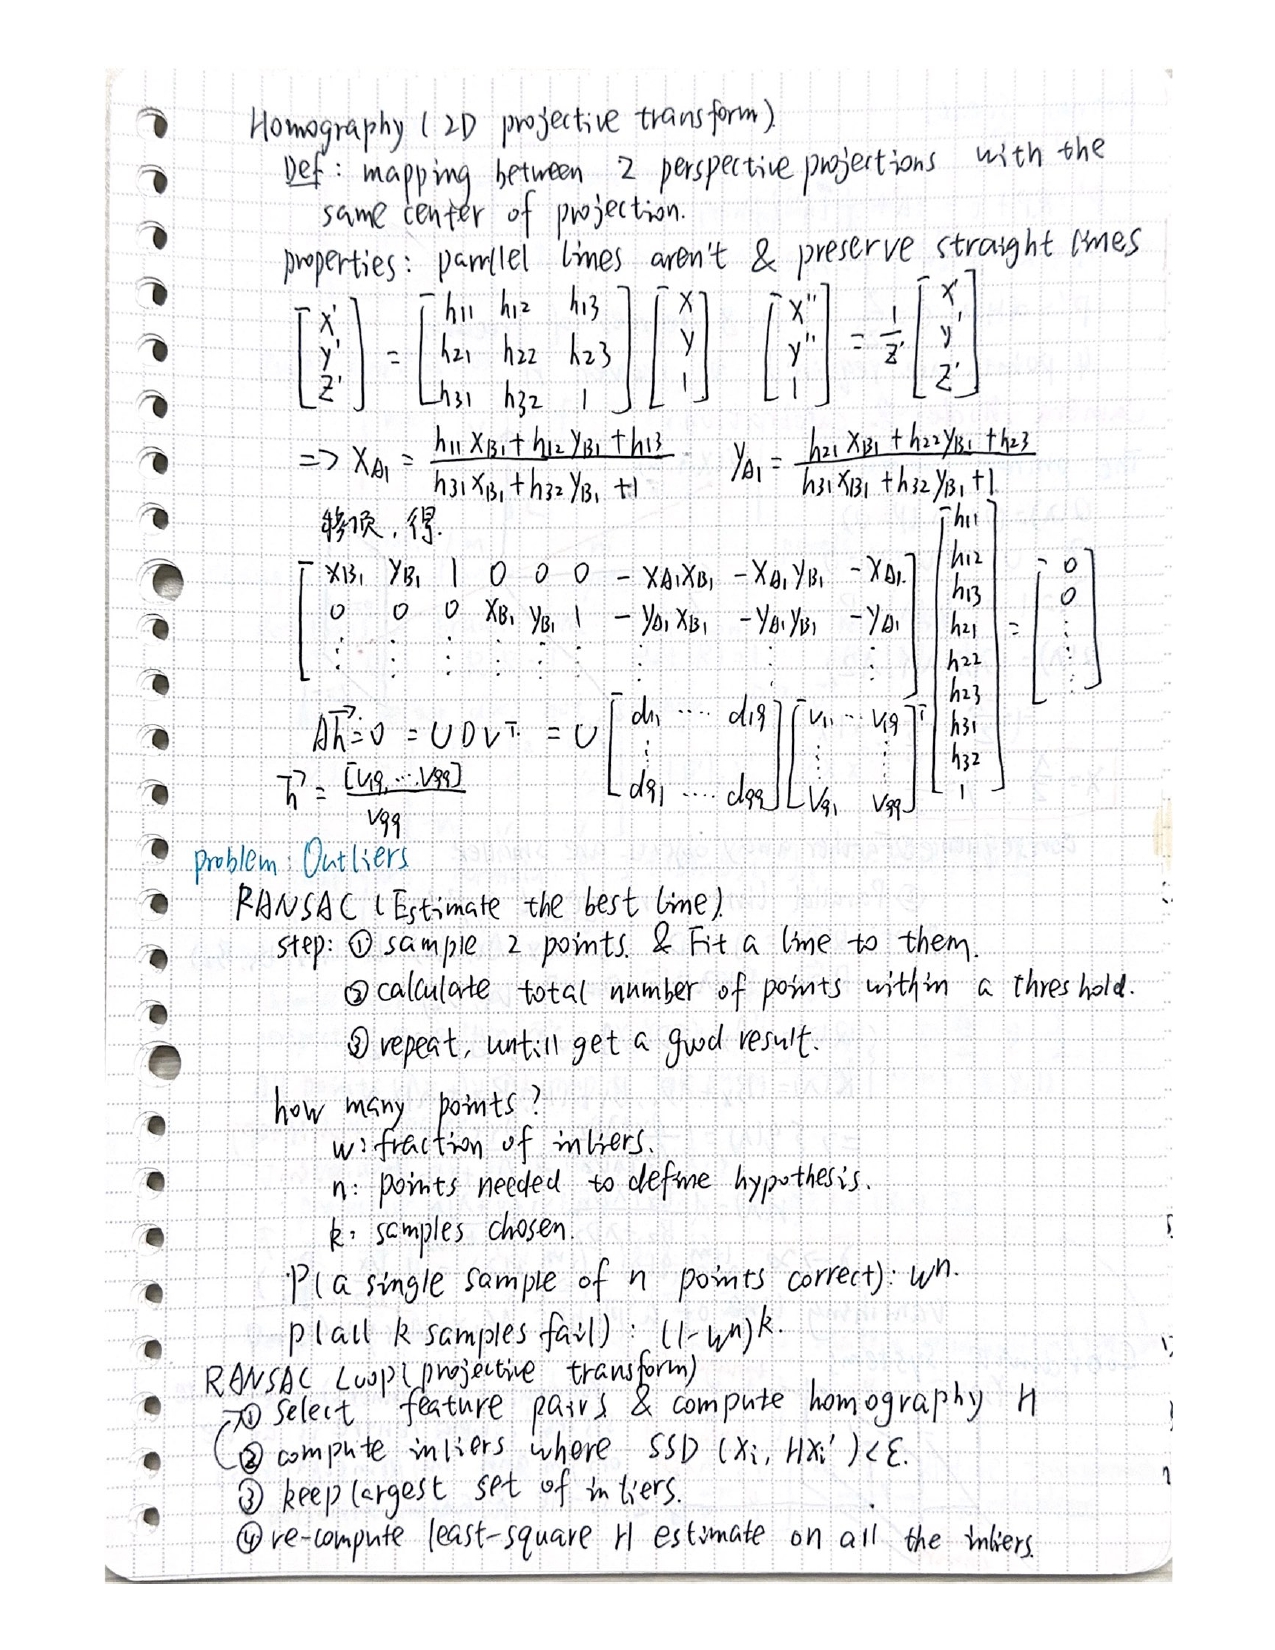 Homography (2D projective transform).
Def: mapping between 2 perspective projections with the
same center of projection.
properties: parallel lines aren't & preserve straight lines
[x' y' z'] = [h11 h12 h13; h21 h22 h23; h31 h32 1] [x y 1]   [x'' y'' 1] = 1/z' [x' y' z']
=> xA1 = (h11 xB1 + h12 yB1 + h13) / (h31 xB1 + h32 yB1 + 1)   yA1 = (h21 xB1 + h22 yB1 + h23) / (h31 xB1 + h32 yB1 + 1)
移项，得.
[xB1 yB1 1 0 0 0 -xA1xB1 -xA1yB1 -xA1; 0 0 0 xB1 yB1 1 -yA1xB1 -yA1yB1 -yA1; ⋮ ⋮ ⋮ ⋮ ⋮ ⋮ ⋮ ⋮ ⋮] [h11 h12 h13 h21 h22 h23 h31 h32 1] = [0 0 ⋮]
Ah⃗=0 = UDV^T = U [d11 ···· d19; ⋮; d91 ···· d99] [v11 ·· v19; ⋮ ⋮; v91 v99]^T
h⃗ = [v19, ··· v99] / v99
problem: Outliers
RANSAC (Estimate the best line).
step: ① sample 2 points. & Fit a line to them.
② calculate total number of points within a threshold.
③ repeat, untill get a good result.
how many points?
w: fraction of inliers.
n: points needed to define hypothesis.
k: samples chosen.
P(a single sample of n points correct): w^n.
P(all k samples fail): (1-w^n)^k.
RANSAC Loop (projective transform)
① select feature pairs & compute homography H
② compute inliers where SSD (xi, Hxi') < ε.
③ keep largest set of inliers.
④ re-compute least-square H estimate on all the inliers.